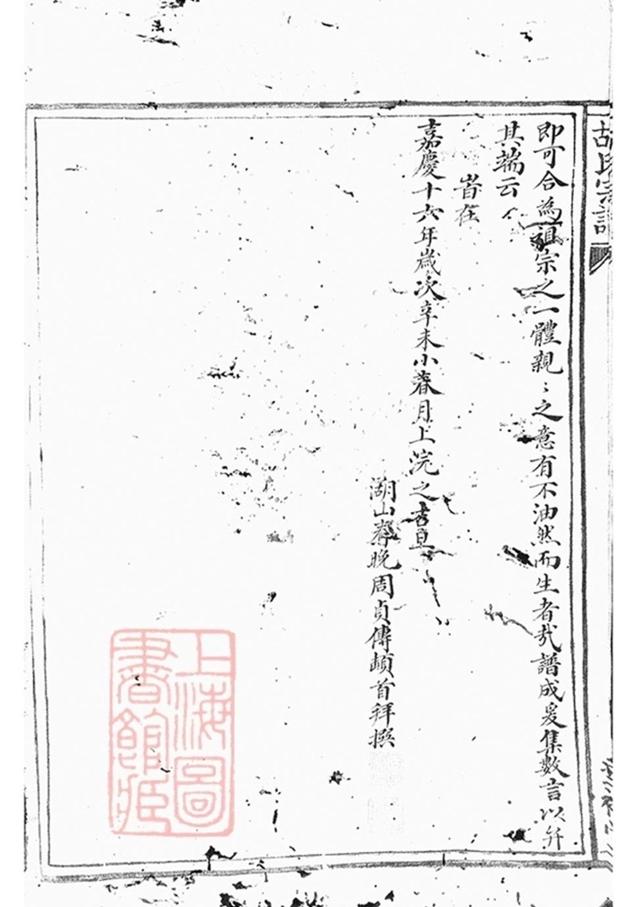 胡氏宗譜
即可合為祖宗之一體親〻之意有不油然而生者㢤譜成爰集數言以弁
其端云
旹在
嘉慶十六年歲次辛未小春月上浣之吉旦
湖山眷晚周貞傳頓首拜撰
上海圖
書館藏